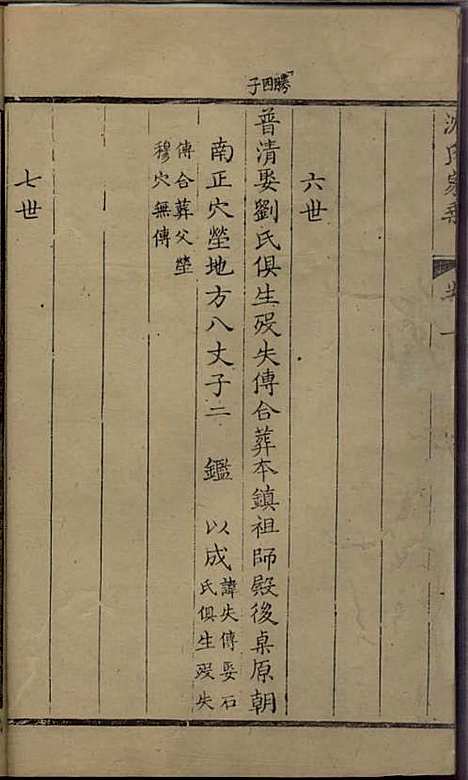 沈氏家乘
卷一
六世
勝四子
普清娶劉氏俱生歿失傳合葬本鎮祖師殿後桌原朝
南正穴塋地方八丈子二　鑑　以成諱失傳娶石
氏俱生歿失
傳合葬父塋
穆穴無傳
七世